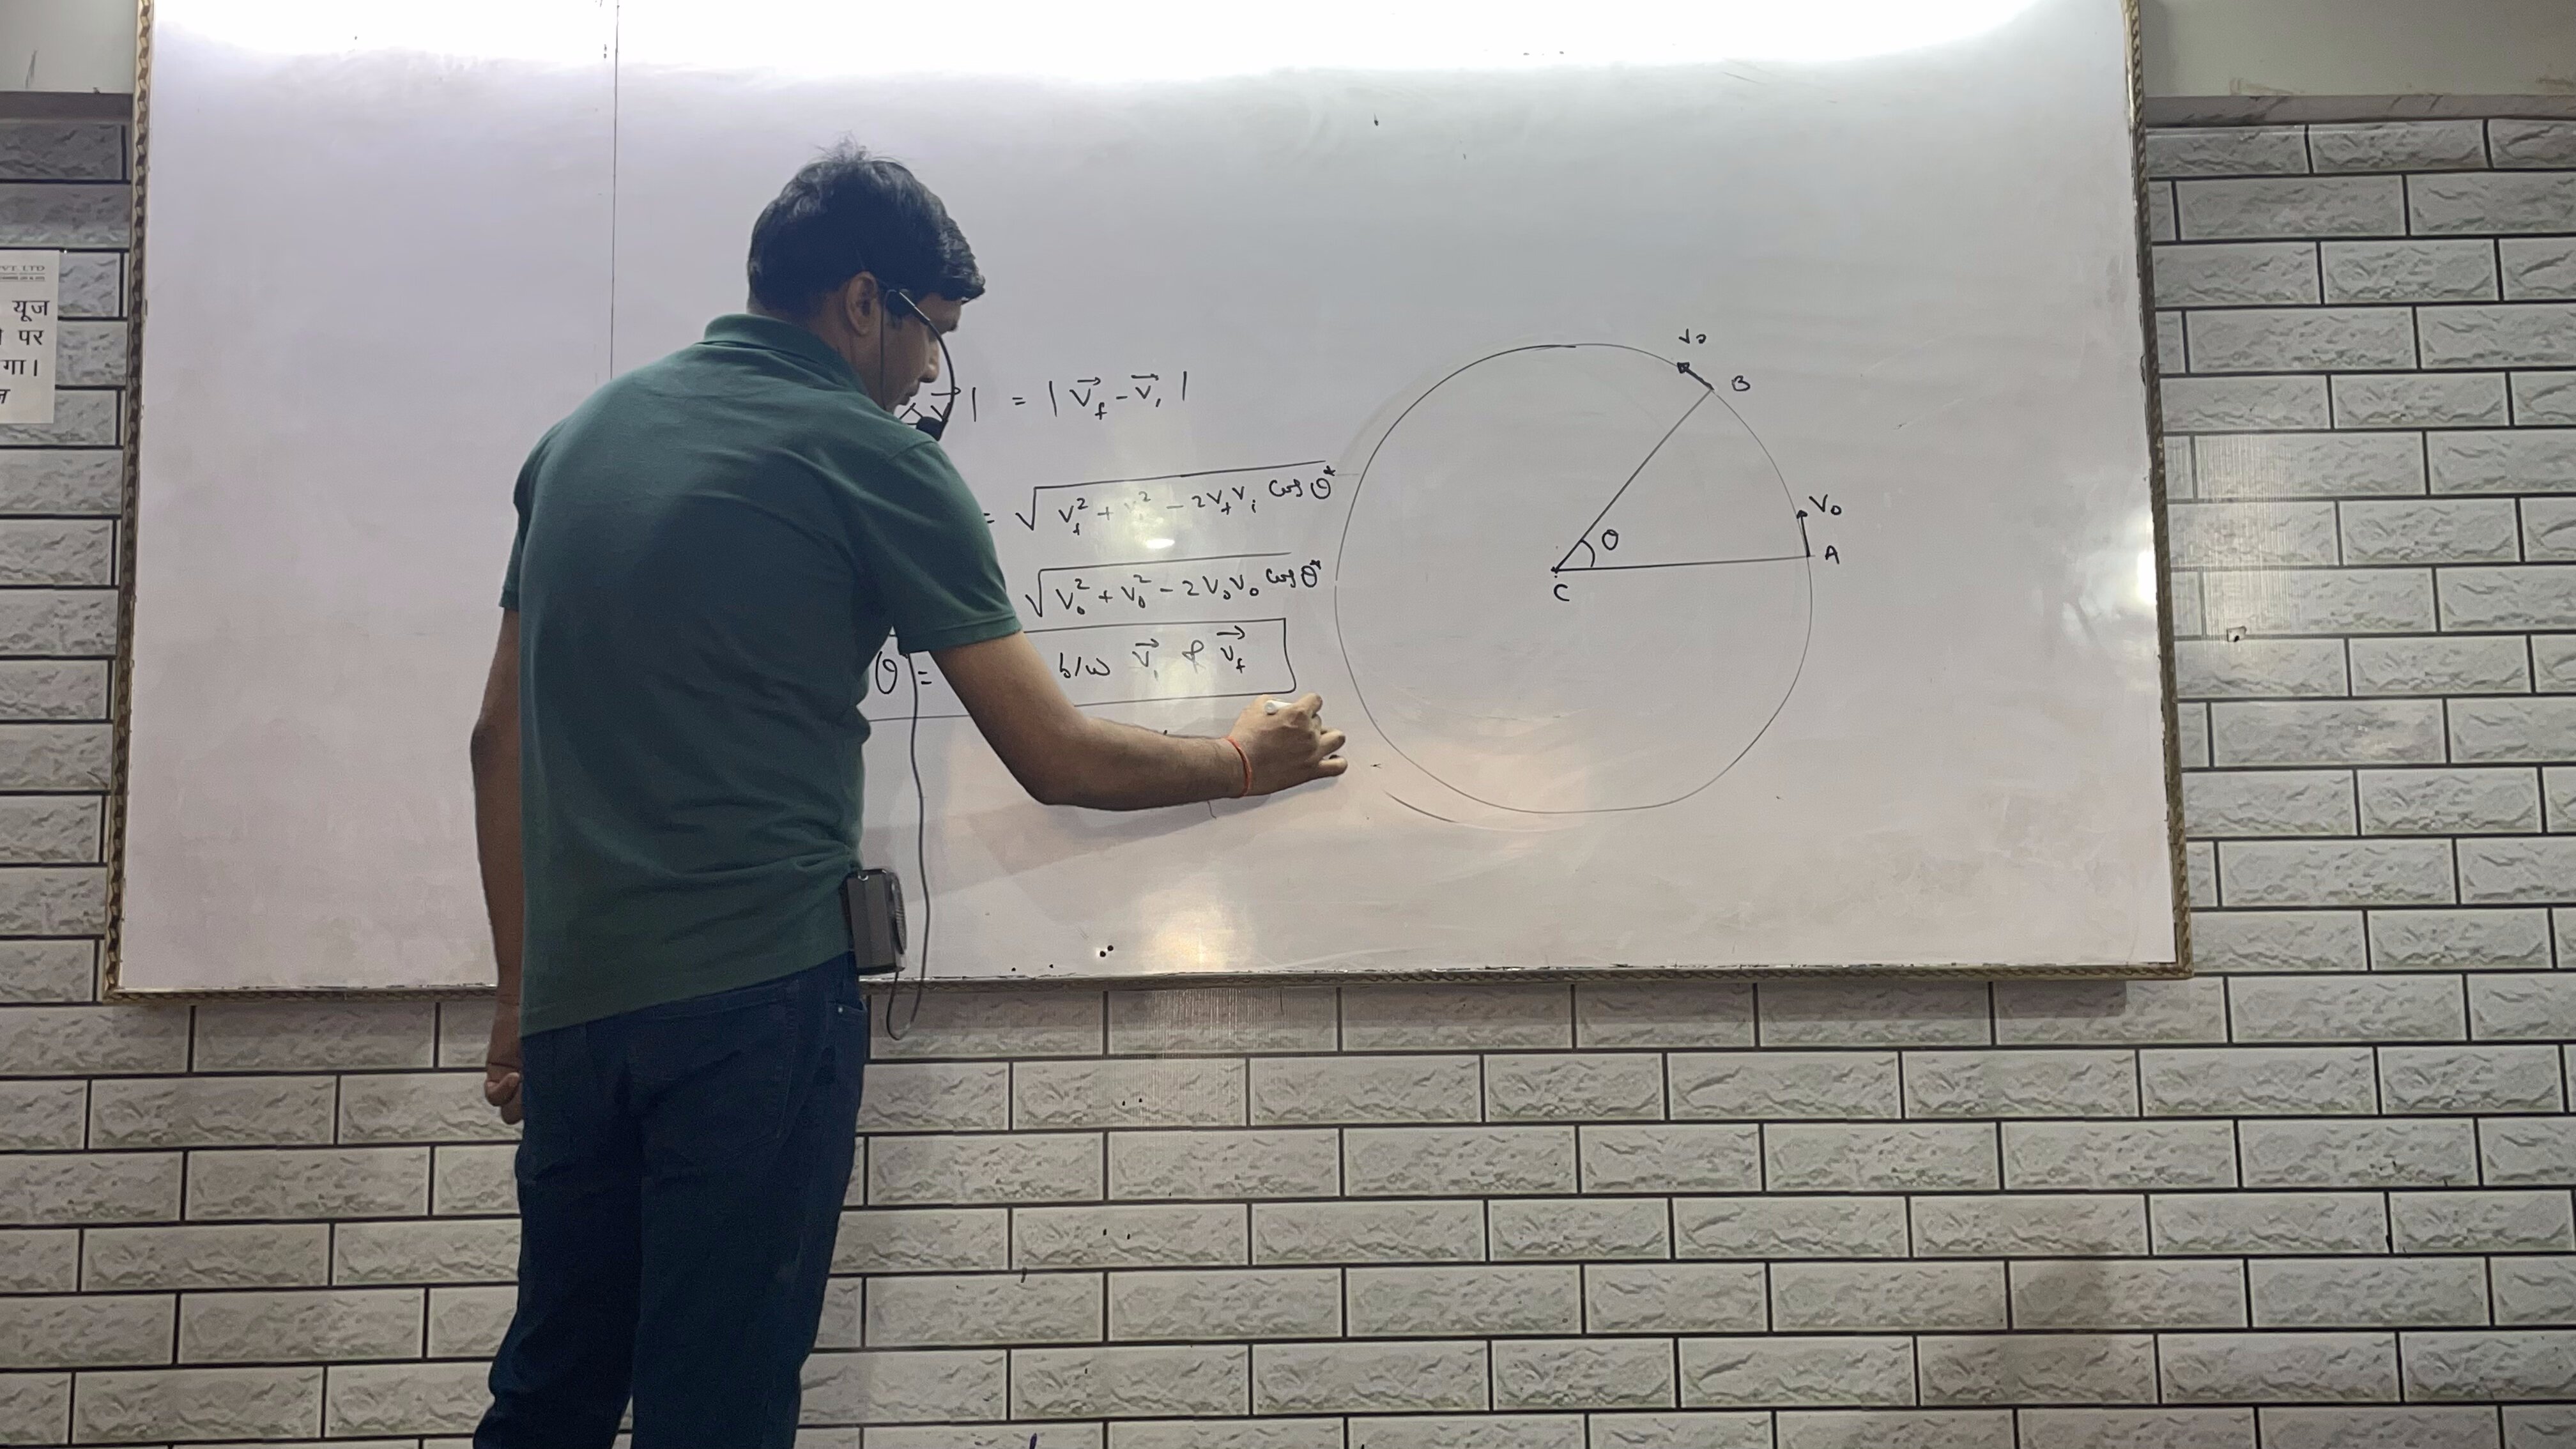 VT. LTD
यूज
पर
गा।
V⃗ | = | V⃗f - V⃗i |
= √ Vf² + Vi² - 2VfVi Cos θ*
√ V0² + V0² - 2V0V0 Cos θ*
θ = b/w V⃗i & V⃗f
V0
B
V0
A
θ
C